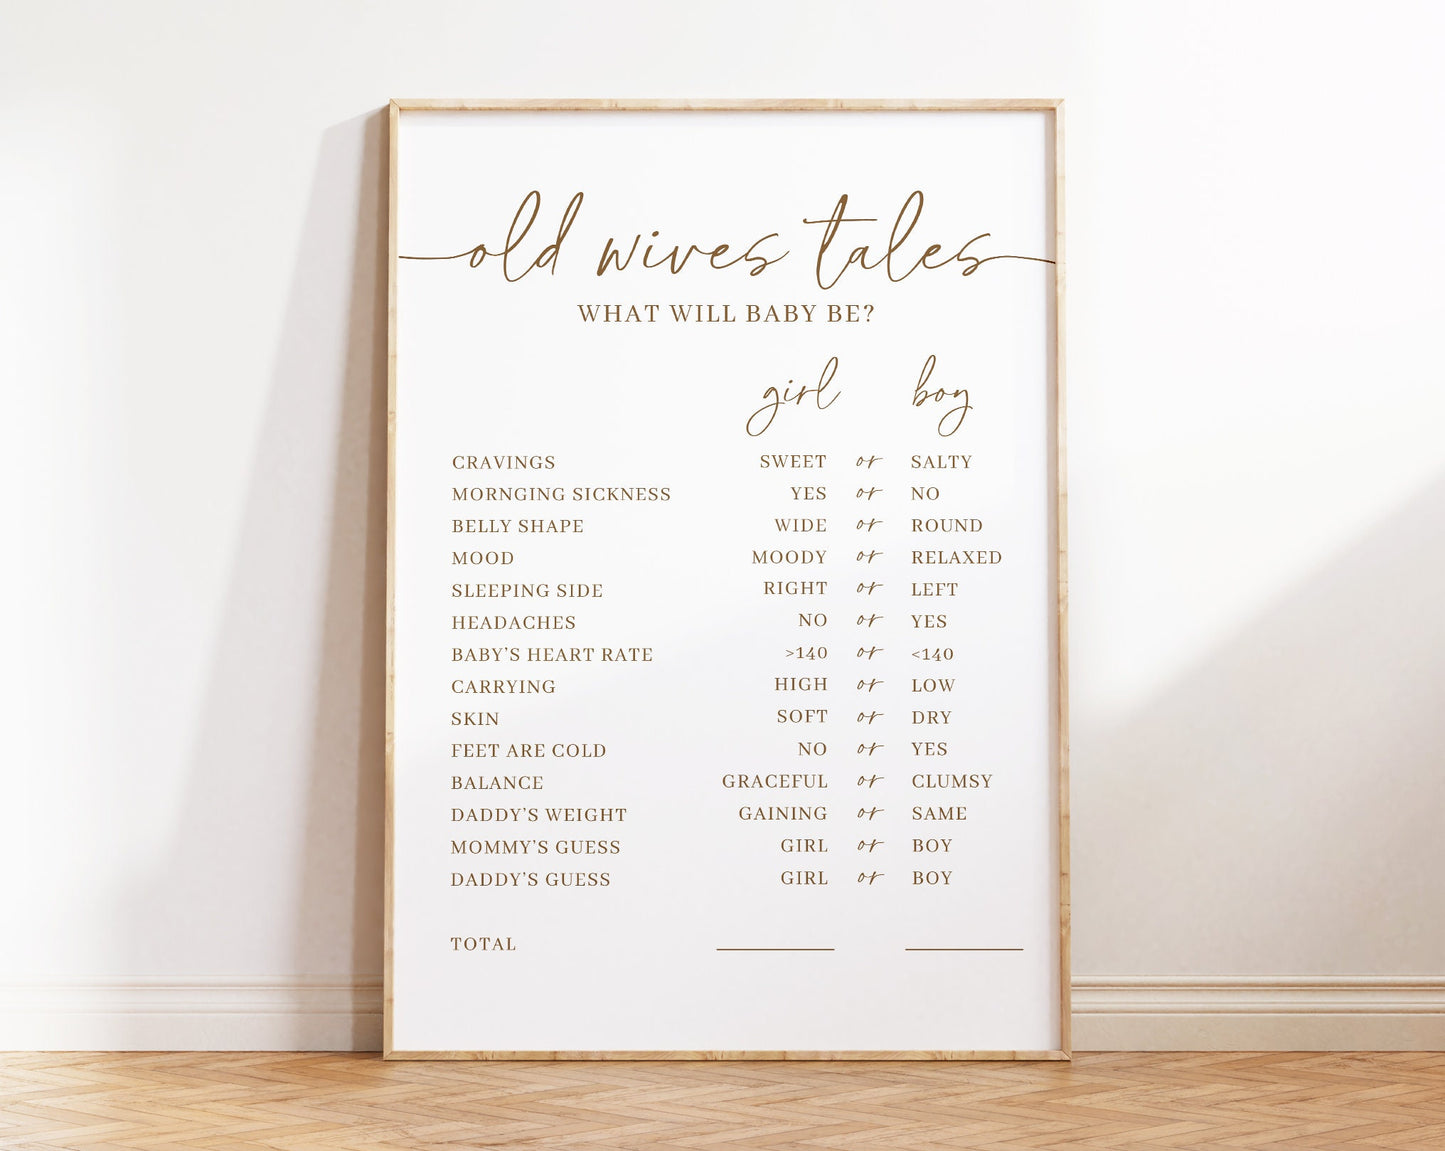 old wives tales
WHAT WILL BABY BE?
girl boy
CRAVINGS SWEET or SALTY
MORNGING SICKNESS YES or NO
BELLY SHAPE WIDE or ROUND
MOOD MOODY or RELAXED
SLEEPING SIDE RIGHT or LEFT
HEADACHES NO or YES
BABY'S HEART RATE >140 or <140
CARRYING HIGH or LOW
SKIN SOFT or DRY
FEET ARE COLD NO or YES
BALANCE GRACEFUL or CLUMSY
DADDY'S WEIGHT GAINING or SAME
MOMMY'S GUESS GIRL or BOY
DADDY'S GUESS GIRL or BOY
TOTAL